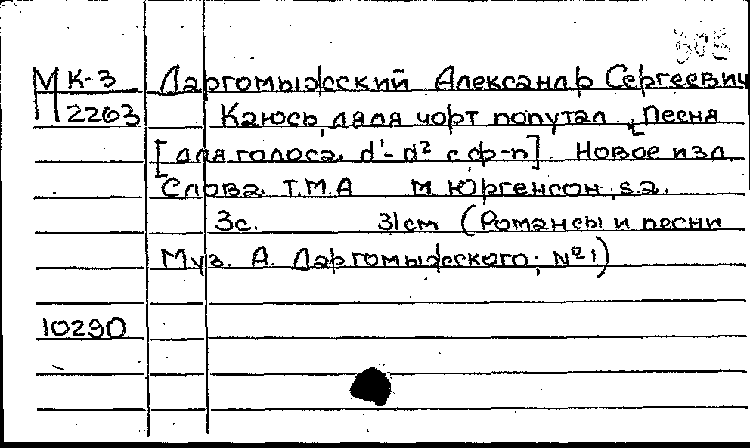 805
М К-3 Даргомыжский Александр Сергеевич
П 2263 Каюсь, дядя, чорт попутал. Песня
[для голоса d¹-d² с ф-п]. Новое изд.
Слова Т.М.А М Юргенсон, s.a.
3с. 31cm (Романсы и песни
Муз. А. Даргомыжского; №21)
10290